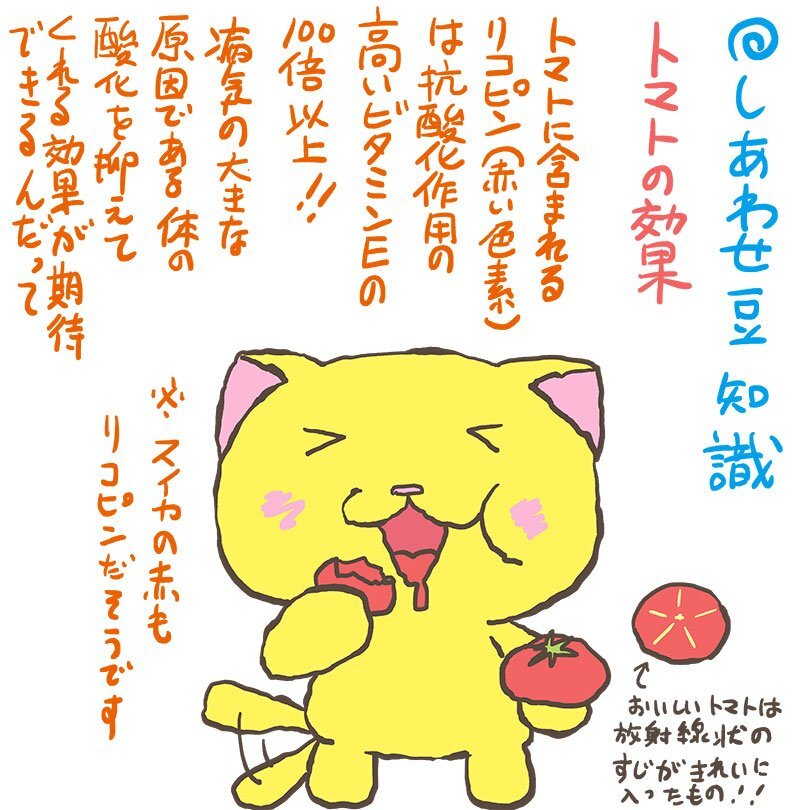 しあわせ豆知識
トマトの効果
トマトに含まれる
リコピン(赤い色素)
は抗酸化作用の
高いビタミンEの
100倍以上!!
病気の大きな
原因である体の
酸化を抑えて
くれる効果が期待
できるんだって
※スイカの赤も
リコピンだそうです
おいしいトマトは
放射線状の
すじがきれいに
入ったもの!!